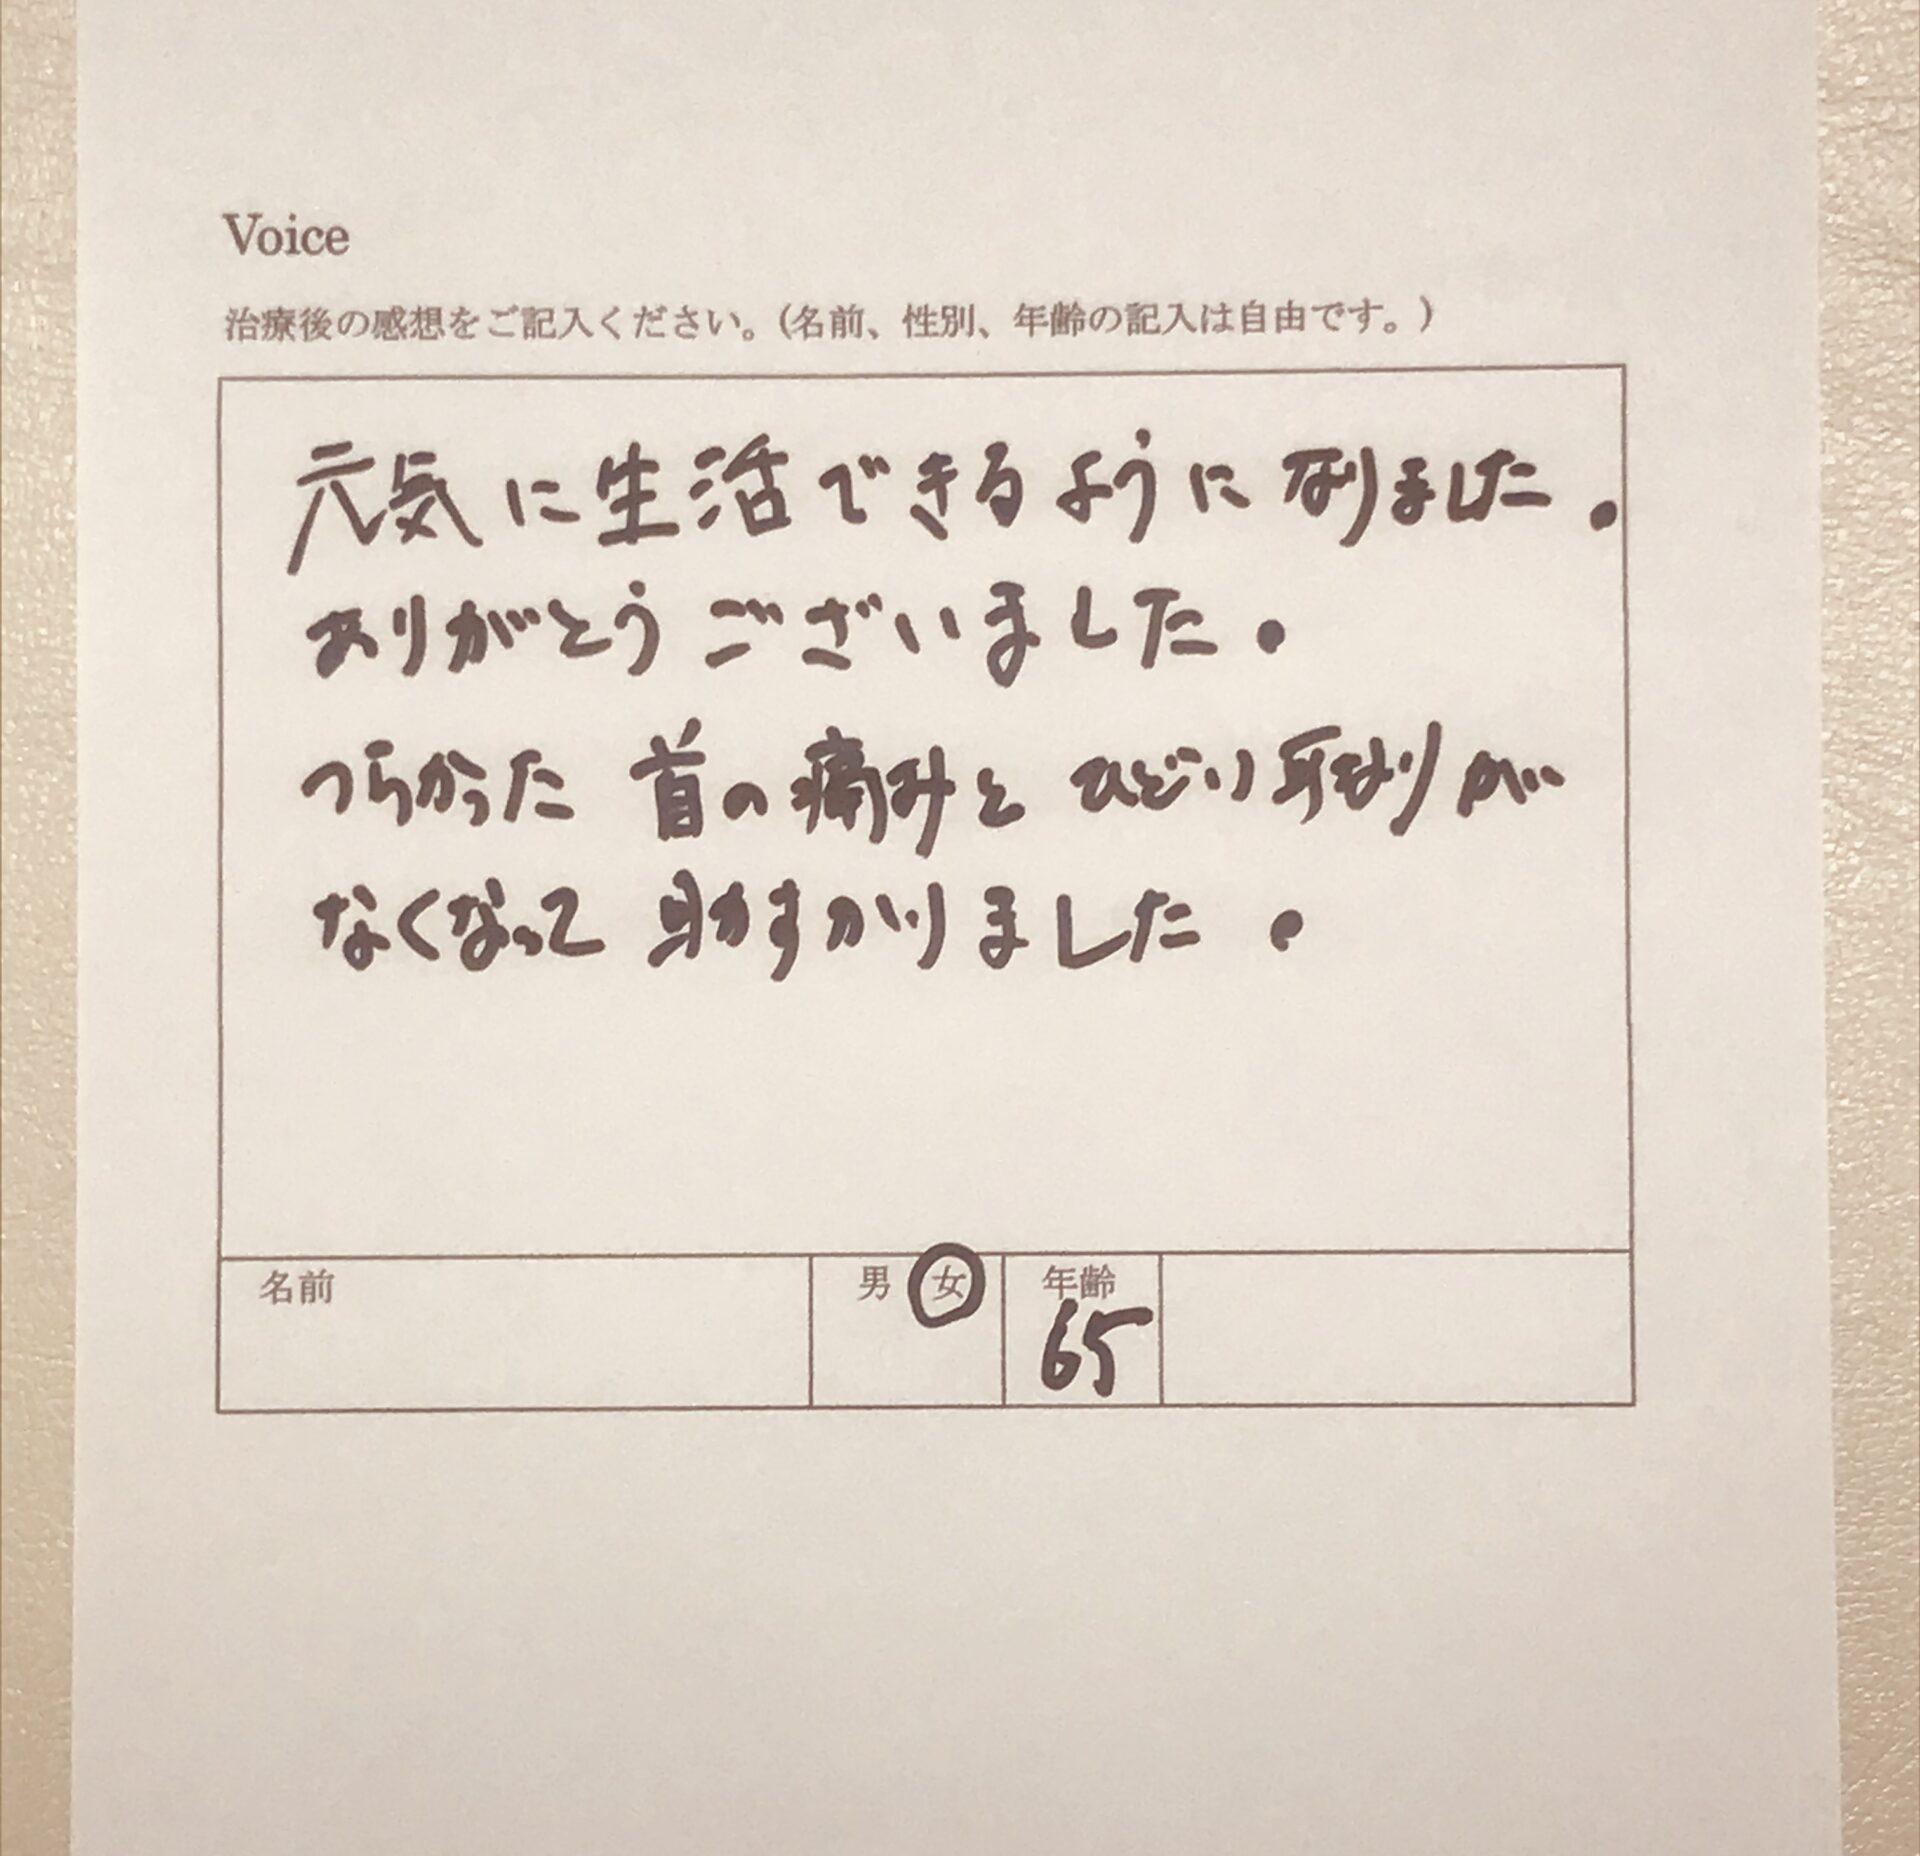 Voice
治療後の感想をご記入ください。(名前、性別、年齢の記入は自由です。)
元気に生活できるようになりました。
ありがとうございました。
つらかった首の痛みとひどい耳なりが
なくなって助すかりました。
名前 男 女 年齢
65